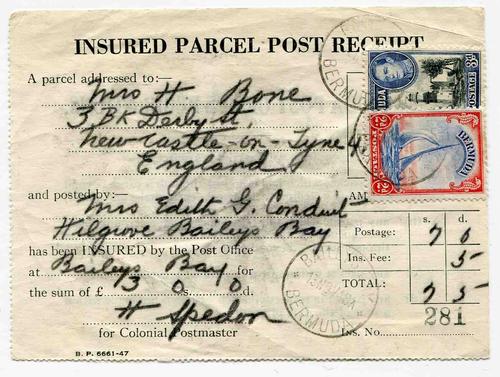 INSURED PARCEL POST RECEIPT
A parcel addressed to:—
Mrs H Bone
3 BK Derby St,
Newcastle-on-Tyne 4
England
and posted by:—
Mrs Edith G. Conduit
Hilgrove Baileys Bay
has been INSURED by the Post Office
at Baileys Bay for
the sum of £ 3 0 0
H Spedon
for Colonial Postmaster
B. P. 6661-47
AM
s. d.
Postage: 7 0
Ins. Fee: 5
TOTAL: 7 5
281
Ins. No.
BERMUDA
POSTAGE
3d
BERMUDA
POSTAGE
2/-
BERMUDA